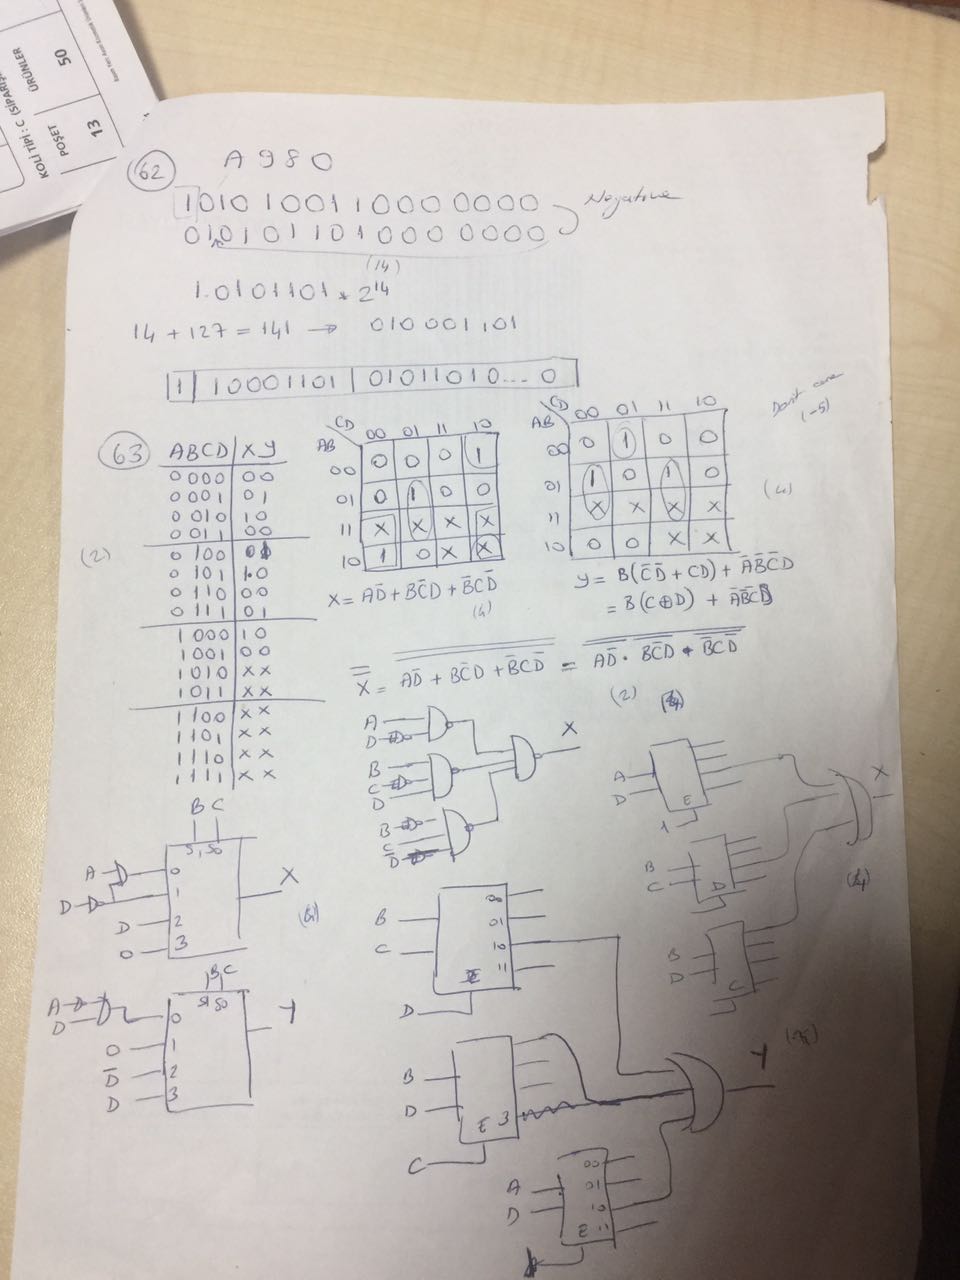 KOLİ TİPİ : C (SİPARİŞ
POŞET
ÜRÜNLER
13
50
62
A 9 8 0
1010 1001 1000 0000
Negative
0101 0110 1000 0000
(14)
1.0101101 * 2^14
14 + 127 = 141 → 010 001 101
1 | 10001101 | 01011010... 0
Don't care
(-5)
63
ABCD | X Y
0000 | 0 0
0001 | 0 1
0010 | 1 0
0011 | 0 0
0100 | 0 1
0101 | 1 0
0110 | 0 0
0111 | 0 1
1000 | 1 0
1001 | 0 0
1010 | X X
1011 | X X
1100 | X X
1101 | X X
1110 | X X
1111 | X X
(2)
AB CD 00 01 11 10
00 0 0 0 1
01 0 1 0 0
11 X X X X
10 1 0 X X
X = AD̅ + BC̅D + B̅CD̅
(4)
AB CD 00 01 11 10
00 0 1 0 0
01 1 0 1 0
11 X X X X
10 0 0 X X
(4)
Y = B(C̅D̅ + CD) + A̅B̅C̅D
= B(C⊕D) + A̅B̅C̅D
(2)
A
D
B
C
D
B
C
D
X
A
D
E
1
B
C
D
B
D
C
X
B C
S1 S0
A
D
D
0
0
1
2
3
X
B C
S1 S0
A
D
0
D̅
D
0
1
2
3
Y
B
C
D
00
01
10
11
E
B
D
C
E 3
A
D
00
01
10
11
E
Y